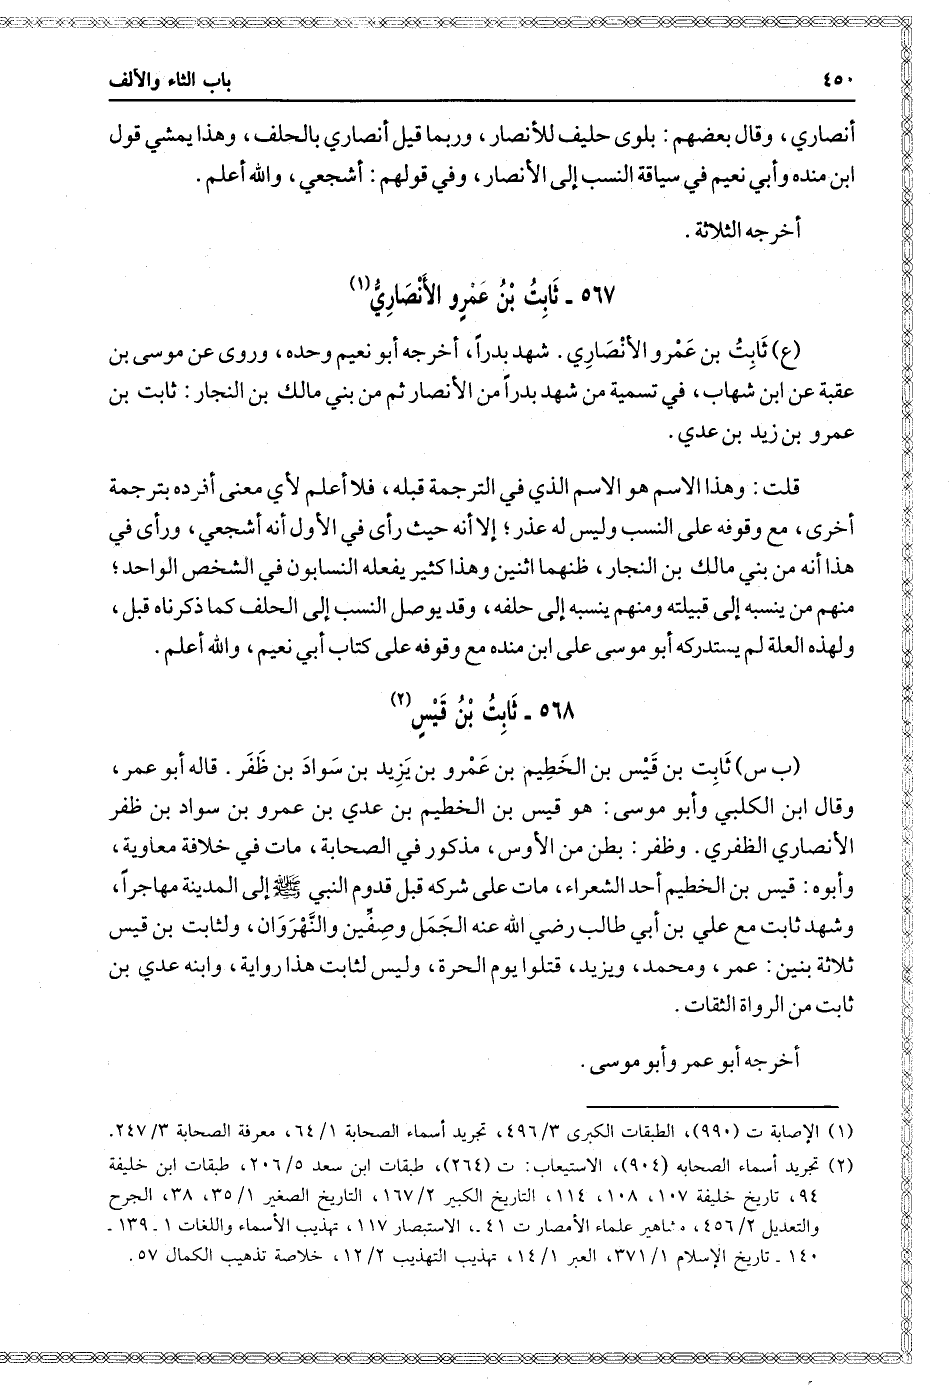 ٤٥٠ باب الثاء والألف
أنصاري، وقال بعضهم: بلوى حليف للأنصار، وربما قيل أنصاري بالحلف، وهذا يمشي قول
ابن منده وأبي نعيم في سياقة النسب إلى الأنصار، وفي قولهم: أشجعي، والله أعلم.
أخرجه الثلاثة.
٥٦٧ ـ ثَابِتُ بْنُ عَمْرٍو الأَنْصَارِيُّ(١)
(ع) ثَابِتُ بن عَمْرو الأنْصَاري. شهد بدراً، أخرجه أبو نعيم وحده، وروى عن موسى بن
عقبة عن ابن شهاب، في تسمية من شهد بدراً من الأنصار ثم من بني مالك بن النجار: ثابت بن
عمرو بن زيد بن عدي.
قلت: وهذا الاسم هو الاسم الذي في الترجمة قبله، فلا أعلم لأي معنى أفرده بترجمة
أخرى، مع وقوفه على النسب وليس له عذر؛ إلا أنه حيث رأى في الأول أنه أشجعي، ورأى في
هذا أنه من بني مالك بن النجار، ظنهما اثنين وهذا كثير يفعله النسابون في الشخص الواحد؛
منهم من ينسبه إلى قبيلته ومنهم ينسبه إلى حلفه، وقد يوصل النسب إلى الحلف كما ذكرناه قبل،
ولهذه العلة لم يستدركه أبو موسى على ابن منده مع وقوفه على كتاب أبي نعيم، والله أعلم.
٥٦٨ ـ ثَابِتُ بْنُ قَيْسٍ(٢)
(ب س) ثَابِت بن قَيْس بن الخَطِيم بن عَمْرو بن يَزِيد بن سَوادَ بن ظَفَر. قاله أبو عمر،
وقال ابن الكلبي وأبو موسى: هو قيس بن الخطيم بن عدي بن عمرو بن سواد بن ظفر
الأنصاري الظفري. وظفر: بطن من الأوس، مذكور في الصحابة، مات في خلافة معاوية،
وأبوه: قيس بن الخطيم أحد الشعراء، مات على شركه قبل قدوم النبي ﷺ إلى المدينة مهاجراً،
وشهد ثابت مع علي بن أبي طالب رضي الله عنه الجَمَل وصِفِّين والنَّهْرَوَان، ولثابت بن قيس
ثلاثة بنين: عمر، ومحمد، ويزيد، قتلوا يوم الحرة، وليس لثابت هذا رواية، وابنه عدي بن
ثابت من الرواة الثقات.
أخرجه أبو عمر وأبو موسى.
(١) الإصابة ت (٩٩٠)، الطبقات الكبرى ٤٩٦/٣، تجريد أسماء الصحابة ٦٤/١، معرفة الصحابة ٢٤٧/٣.
(٢) تجريد أسماء الصحابه (٩٠٤)، الاستيعاب: ت (٢٦٤)، طبقات ابن سعد ٢٠٦/٥، طبقات ابن خليفة
٩٤، تاريخ خليفة ١٠٧، ١٠٨، ١١٤، التاريخ الكبير ١٦٧/٢، التاريخ الصغير ٣٥/١، ٣٨، الجرح
والتعديل ٤٥٦/٢، مشاهير علماء الأمصار ت ٤١ ـ، الاستبصار ١١٧، تهذيب الأسماء واللغات ١ ـ ١٣٩ ـ
١٤٠ ـ تاريخ الإسلام ٣٧١/١، العبر ١٤/١، تهذيب التهذيب ١٢/٢، خلاصة تذهيب الكمال ٥٧.